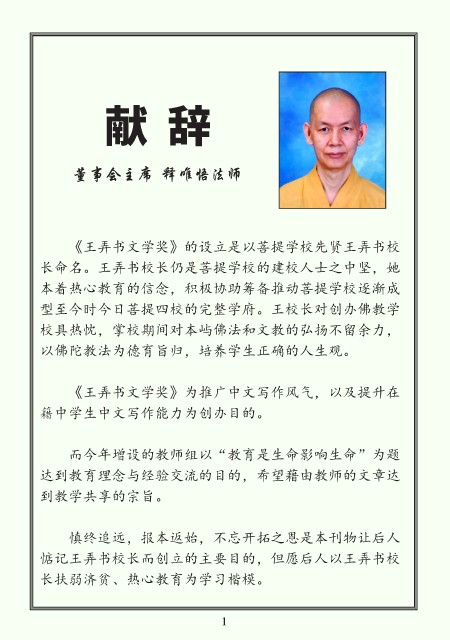 献 辞
董事会主席 释唯悟法师
《王弄书文学奖》的设立是以菩提学校先贤王弄书校
长命名。王弄书校长仍是菩提学校的建校人士之中坚，她
本着热心教育的信念，积极协助筹备推动菩提学校逐渐成
型至今时今日菩提四校的完整学府。王校长对创办佛教学
校具热忱，掌校期间对本屿佛法和文教的弘扬不留余力，
以佛陀教法为德育旨归，培养学生正确的人生观。
《王弄书文学奖》为推广中文写作风气，以及提升在
籍中学生中文写作能力为创办目的。
而今年增设的教师组以“教育是生命影响生命”为题
达到教育理念与经验交流的目的，希望藉由教师的文章达
到教学共享的宗旨。
慎终追远，报本返始，不忘开拓之恩是本刊物让后人
惦记王弄书校长而创立的主要目的，但愿后人以王弄书校
长扶弱济贫、热心教育为学习楷模。
1